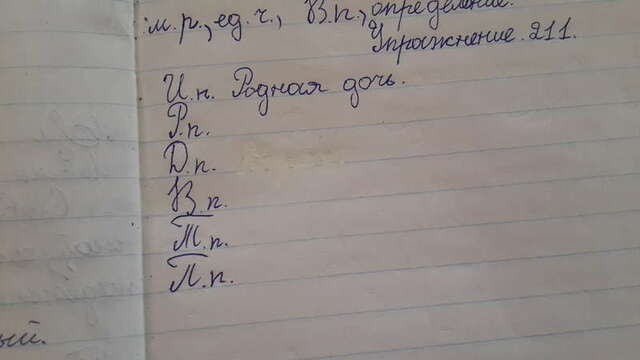 м.р., ед.ч., В.п., определение.
Упражнение.211.
И.п. Родная дочь.
Р.п.
Д.п.
В.п.
Т.п.
П.п.
ый.